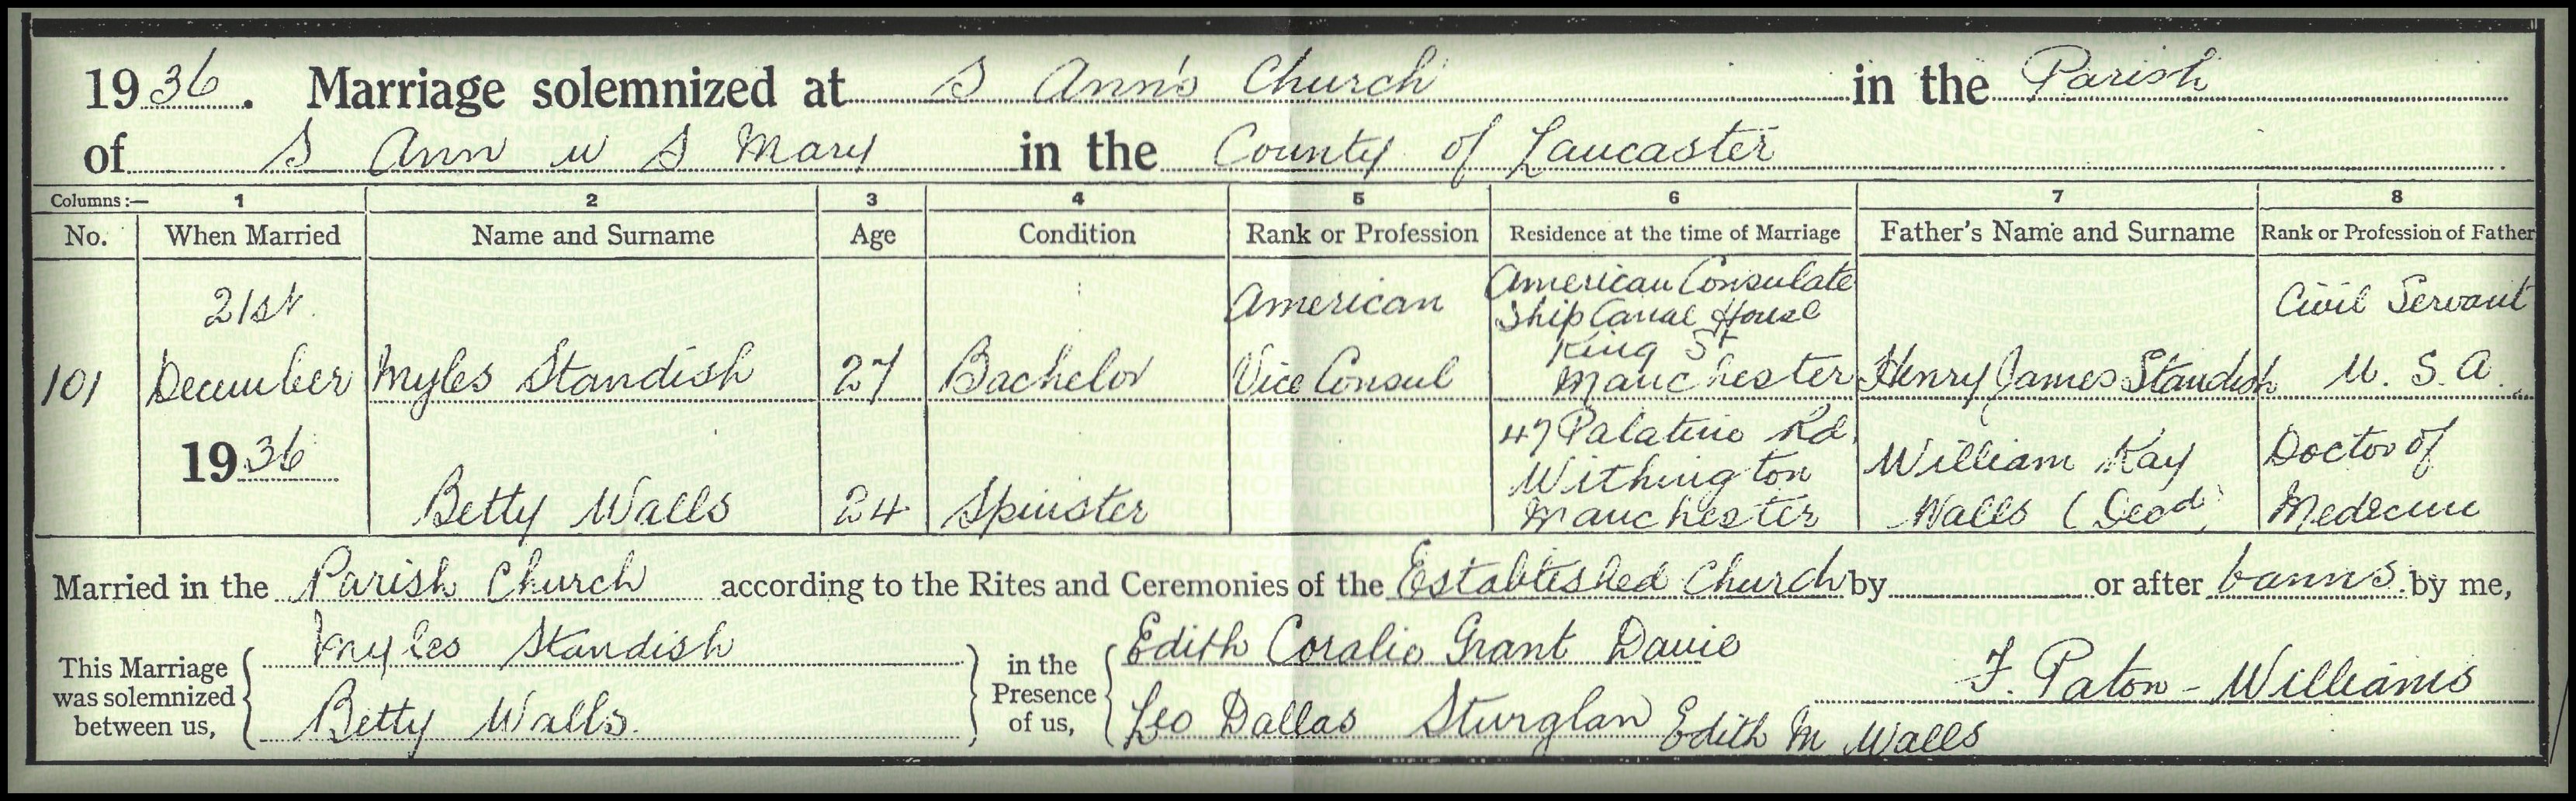 1936. Marriage solemnized at S Ann's Church in the Parish
of S Ann w S Mary in the County of Lancaster
Columns:— 1 2 3 4 5 6 7 8
No. When Married Name and Surname Age Condition Rank or Profession Residence at the time of Marriage Father's Name and Surname Rank or Profession of Father
101 21st December 1936
Myles Standish 27 Bachelor American Vice Consul American Consulate Ship Canal House King St Manchester Henry James Standish Civil Servant U. S. A.
Betty Walls 24 Spinster 47 Palatine Rd. Withington Manchester William Kay Walls (Decd) Doctor of Medicine
Married in the Parish Church according to the Rites and Ceremonies of the Established Church by or after banns by me,
This Marriage was solemnized between us, Myles Standish
Betty Walls.
in the Presence of us, Edith Coralie Grant Davie
Leo Dallas Edith M Walls
F. Paton-Williams